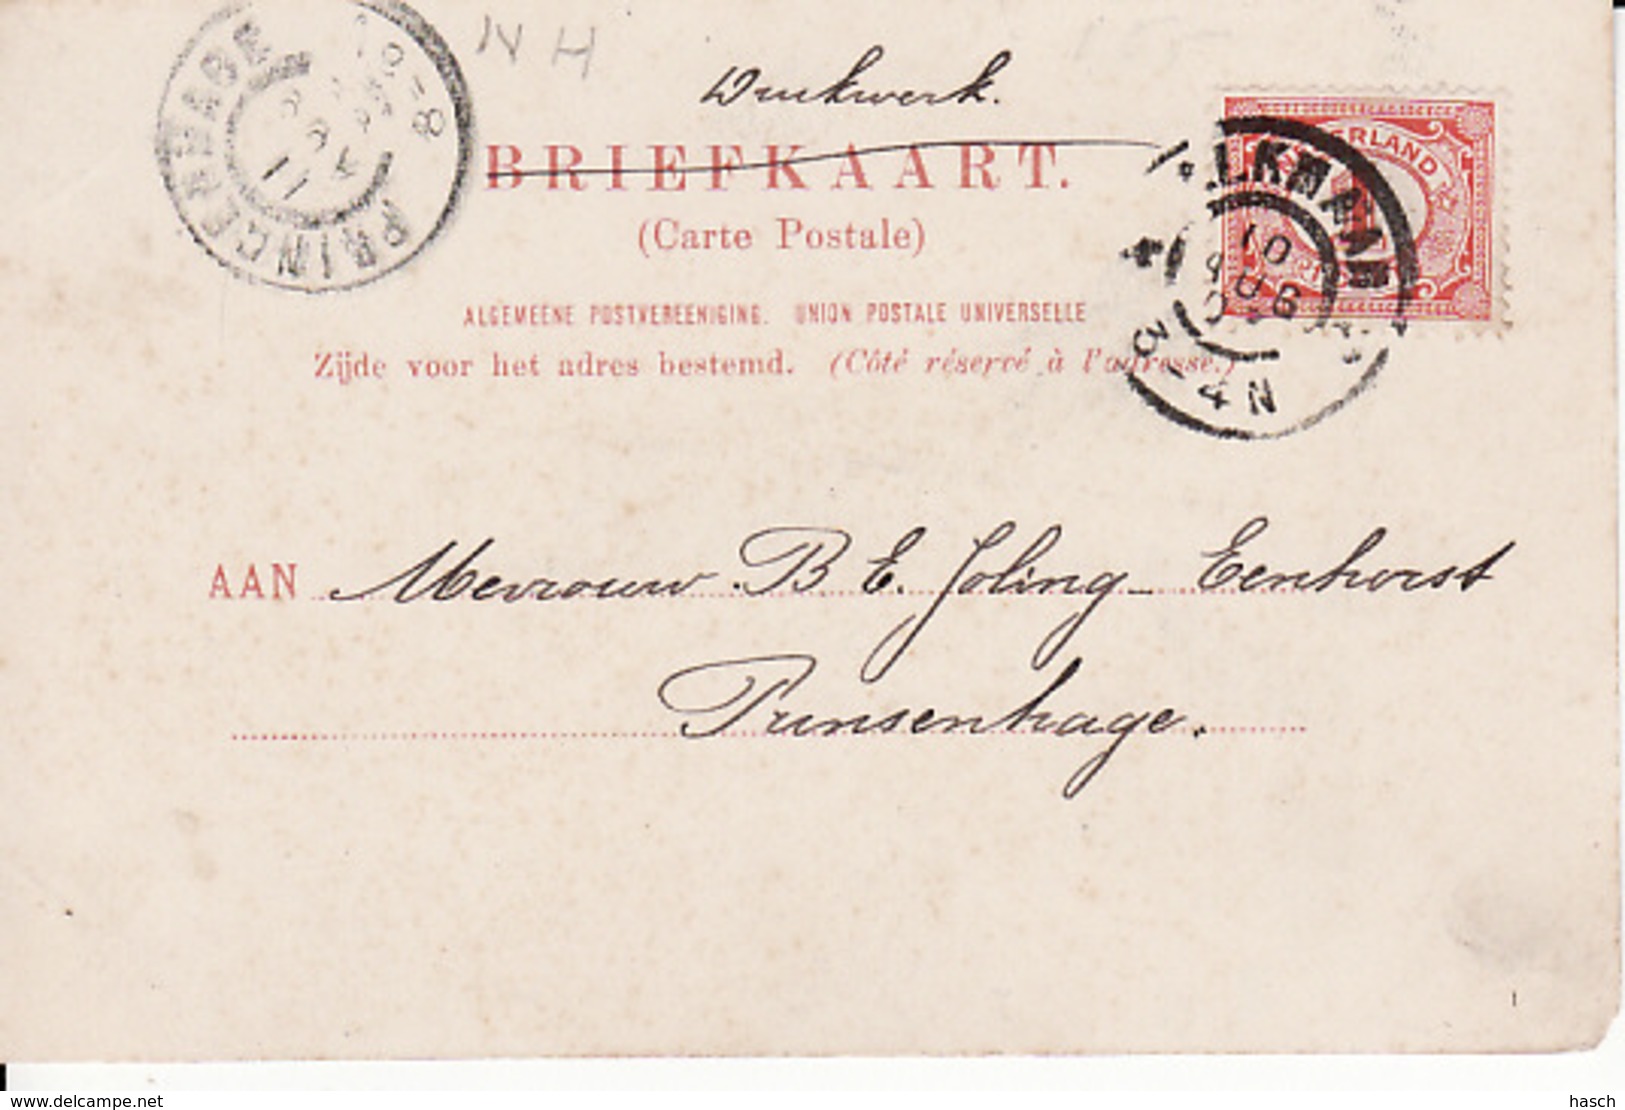 NH
Drukwerk.
PRINCENHAGE
8-
11
BRIEFKAART.
(Carte Postale)
ALGEMEENE POSTVEREENIGING. UNION POSTALE UNIVERSELLE
Zijde voor het adres bestemd. (Côté réservé à l'adresse.)
ERLAND
ALKMAAR
10
AUG
3-4N
AAN Mevrouw B E. Joling-Eenhorst
Prinsenhage.
www.delcampe.net
hasch